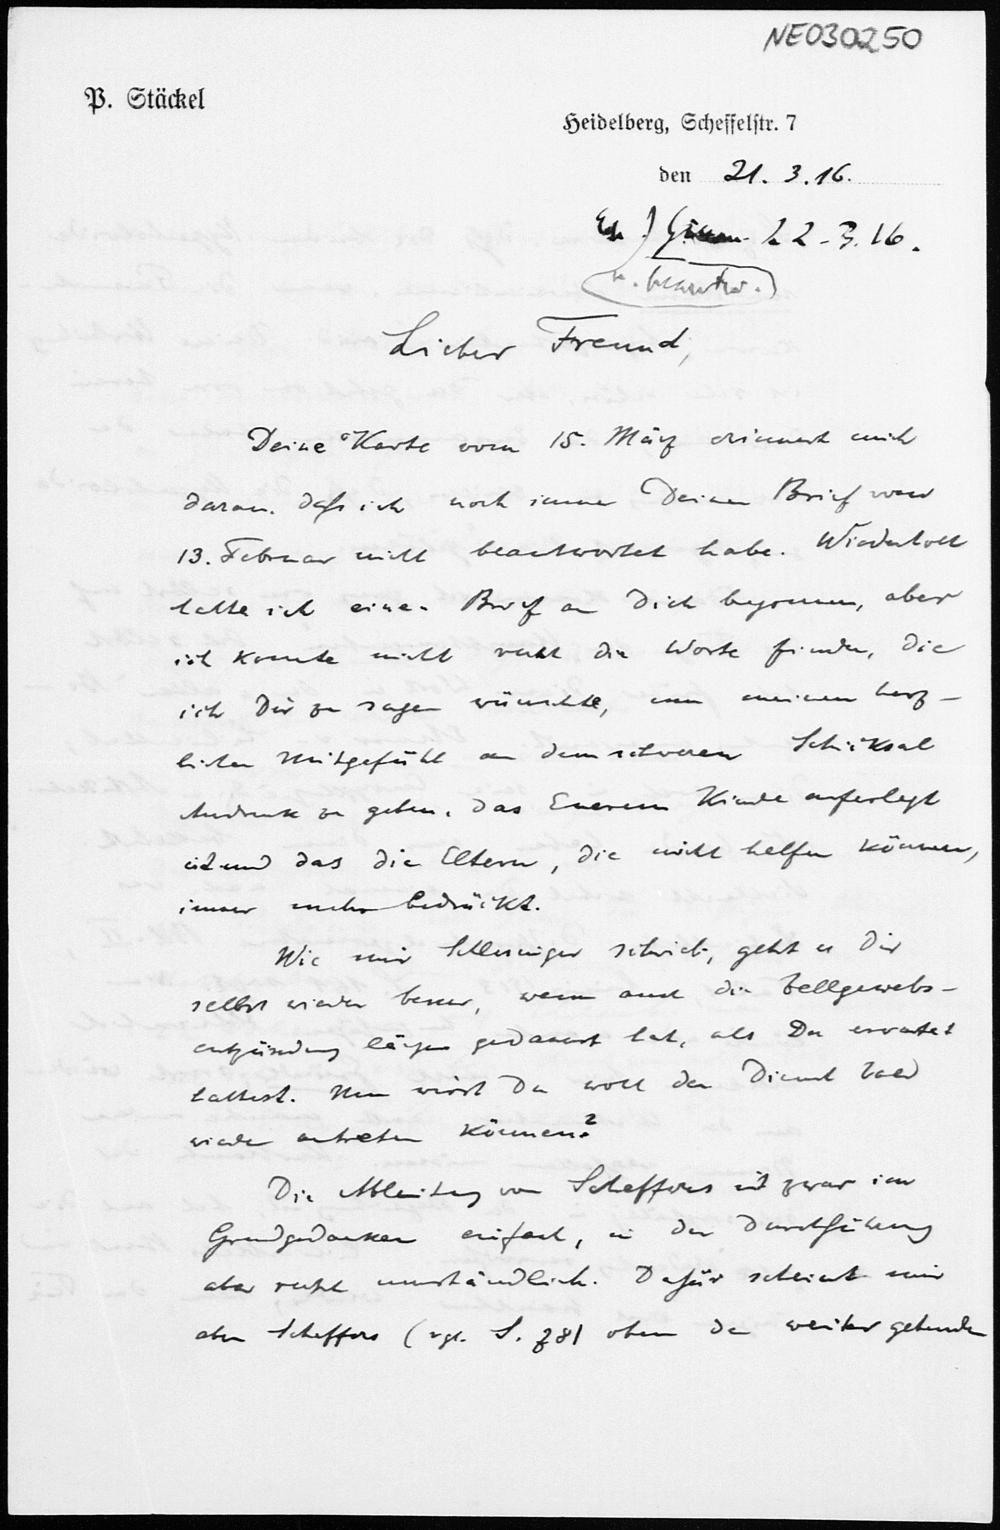 NE030250
P. Stäckel
Heidelberg, Scheffelstr. 7
den 21. 3. 16.
22-3.16.
u. beantw.
Lieber Freund,
Deine Karte vom 15. März erinnert mich
daran, daß ich noch immer Deinen Brief vom
13. Februar nicht beantwortet habe. Wiederholt
hatte ich einen Brief an Dich begonnen, aber
ich konnte nicht recht die Worte finden, die
ich Dir zu sagen wünschte, um meinem herz-
lichen Mitgefühl an dem schweren Schicksal
Ausdruck zu geben, das Euerem Kinde auferlegt
ist und das die Eltern, die nicht helfen können,
immer mehr bedrückt.
Wie mir Schlesinger schrieb, geht es Dir
selbst wieder besser, wenn auch die Zellgewebs-
entzündung länger gedauert hat, als Du erwartet
hattest. Nun wirst Du wohl den Dienst bald
wieder antreten können?
Die Ableitung von Scheffers ist zwar im
Grundgedanken einfach, in der Durchführung
aber recht umständlich. Dafür scheint mir
aber Scheffers (vgl. S. 78) oben den weiter gehenden